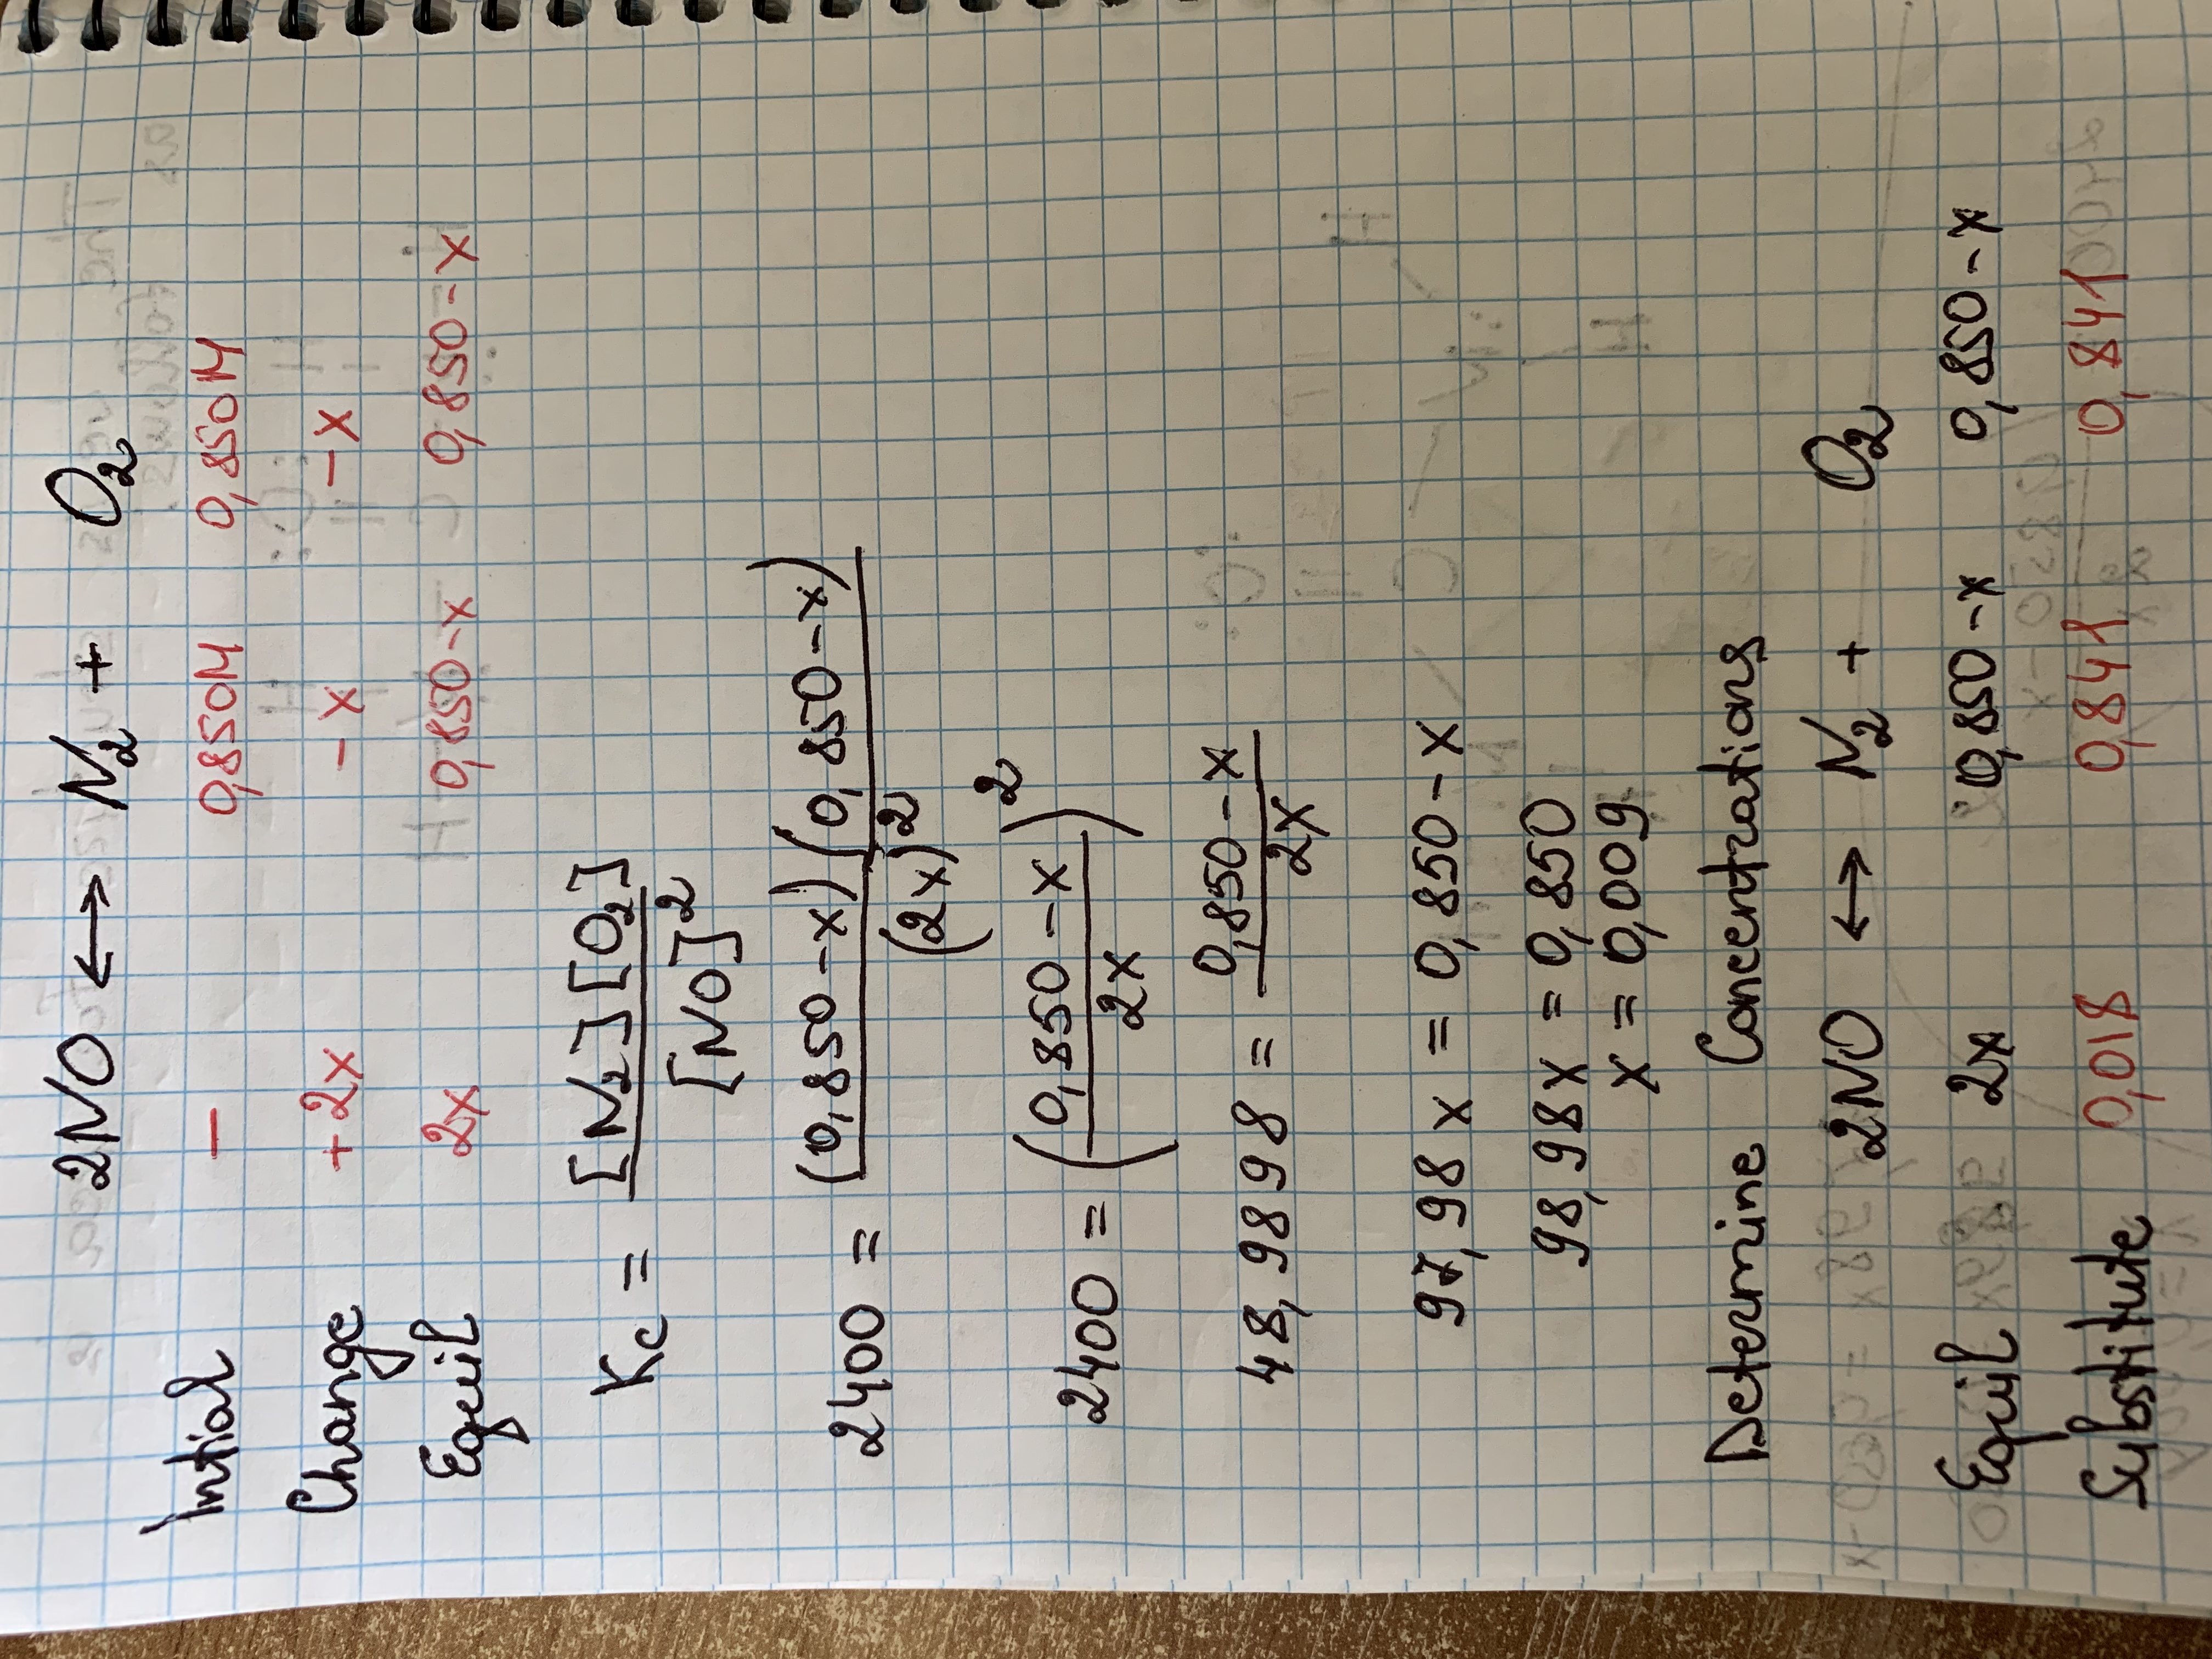 2NO ↔ N₂ + O₂
Intial – 0,850M 0,850M
Change +2x –x –x
Equil 2x 0,850–x 0,850–x
Kc = [N₂][O₂] / [NO]²
2400 = (0,850–x)(0,850–x) / (2x)²
2400 = (0,850–x / 2x)²
48,9898 = 0,850–x / 2x
97,98x = 0,850–x
98,98x = 0,850
x = 0,009
Determine Concentrations
2NO ↔ N₂ + O₂
Equil 2x 0,850–x 0,850–x
Substitute 0,018 0,841 0,841